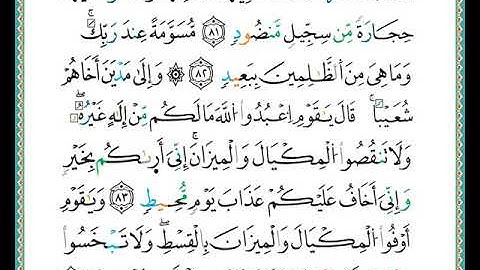 حِجَارَةً مِّن سِجِّيلٍ مَّنضُودٍ ٨١ مُّسَوَّمَةً عِندَ رَبِّكَۖ
وَمَا هِىَ مِنَ ٱلظَّٰلِمِينَ بِبَعِيدٍ ٨٢ ۞ وَإِلَىٰ مَدْيَنَ أَخَاهُمْ
شُعَيْبًاۚ قَالَ يَٰقَوْمِ ٱعْبُدُوا۟ ٱللَّهَ مَا لَكُم مِّنْ إِلَٰهٍ غَيْرُهُۥۖ
وَلَا تَنقُصُوا۟ ٱلْمِكْيَالَ وَٱلْمِيزَانَۚ إِنِّىٓ أَرَىٰكُم بِخَيْرٍ
وَإِنِّىٓ أَخَافُ عَلَيْكُمْ عَذَابَ يَوْمٍ مُّحِيطٍ ٨٣ وَيَٰقَوْمِ
أَوْفُوا۟ ٱلْمِكْيَالَ وَٱلْمِيزَانَ بِٱلْقِسْطِۖ وَلَا تَبْخَسُوا۟